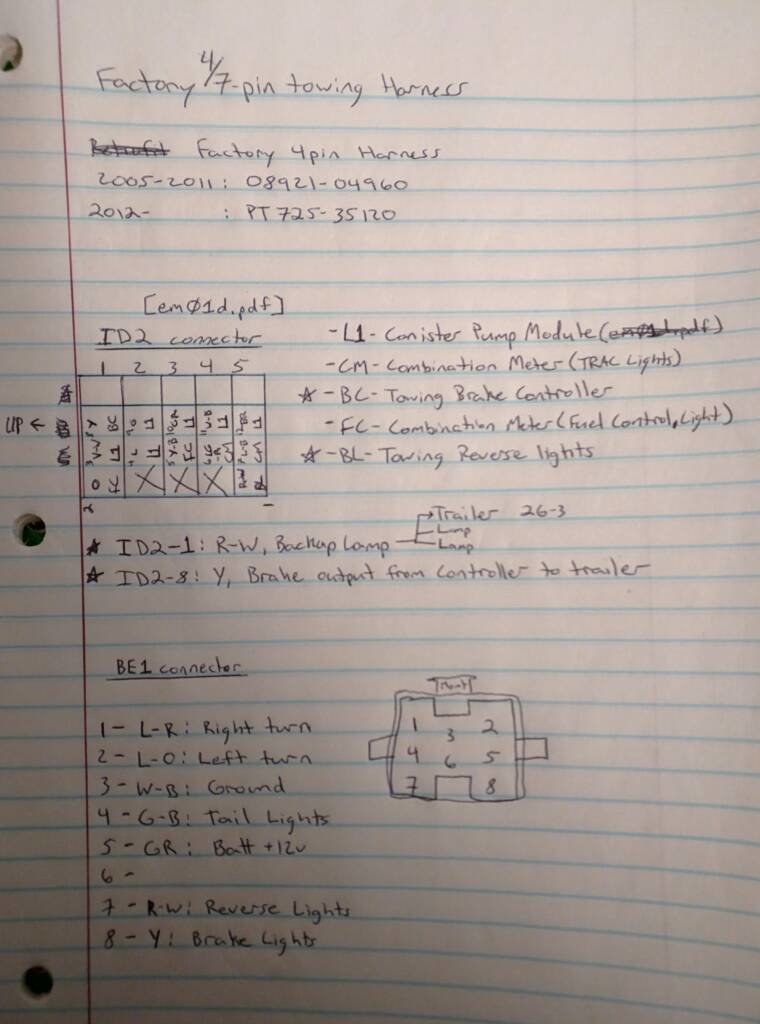 Factory 4/7-pin towing Harness
Factory 4pin Harness
2005-2011: 08921-04960
2012- : PT725-35120
[em01d.pdf]
ID2 connector
1 2 3 4 5
UP ←
- L1 - Canister Pump Module (em01d.pdf)
- CM - Combination Meter (TRAC Lights)
☆ - BC - Towing Brake Controller
- FC - Combination Meter (Fuel Control, Light)
☆ - BL - Towing Reverse lights
☆ ID2-1: R-W, Backup lamp
Trailer 26-3
Lamp
Lamp
☆ ID2-8: Y, Brake output from controller to trailer
BE1 connector
Front
1 2
3
4 5
6
7 8
1 - L-R: Right turn
2 - L-O: Left turn
3 - W-B: Ground
4 - G-B: Tail Lights
5 - GR: Batt +12v
6 -
7 - R-W: Reverse Lights
8 - Y: Brake Lights